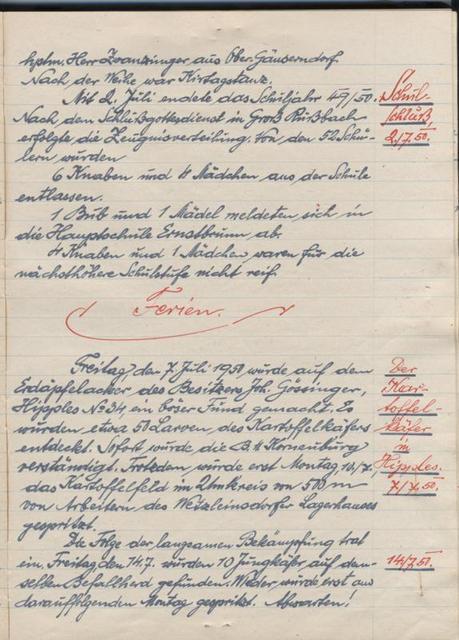 hptm. Herr Zwanzinger aus Ober Gänserndorf.
Nach der Weihe war Kirtagstanz.
Mit 2. Juli endete das Schuljahr 49/50.
Schul-
schluß
2./7.50.
Nach dem Schlußgottesdienst in Groß Rußbach
erfolgte die Zeugnisverteilung. Von den 52 Schü-
lern wurden
6 Knaben und 4 Mädchen aus der Schule
entlassen.
1 Bub und 1 Mädel meldeten sich in
die Hauptschule Ernstbrunn ab.
4 Knaben und 1 Mädchen waren für die
nächsthöhere Schulstufe nicht reif.
Ferien.
Freitag, den 7. Juli 1950 wurde auf dem
Erdäpfelacker des Besitzers Joh. Gössinger,
Hipples No 34, ein böser Fund gemacht. Es
wurden etwa 50 Larven des Kartoffelkäfers
entdeckt. Sofort wurde die B.H. Korneuburg
verständigt. Trotzdem, wurde erst Montag, 10./7.,
das Kartoffelfeld im Umkreis von 500 m
von Arbeitern des Wetzleinsdorfer Lagerhauses
gespritzt.
Der
Kar-
toffel-
käfer
in
Hipples.
7./7.50.
Die Folge der langsamen Bekämpfung trat
ein. Freitag den 14.7. wurden 10 Jungkäfer auf dem-
selben Befallherd gefunden. Wieder wurde erst am
darauffolgenden Montag gespritzt. Abwarten!
14/7.50.